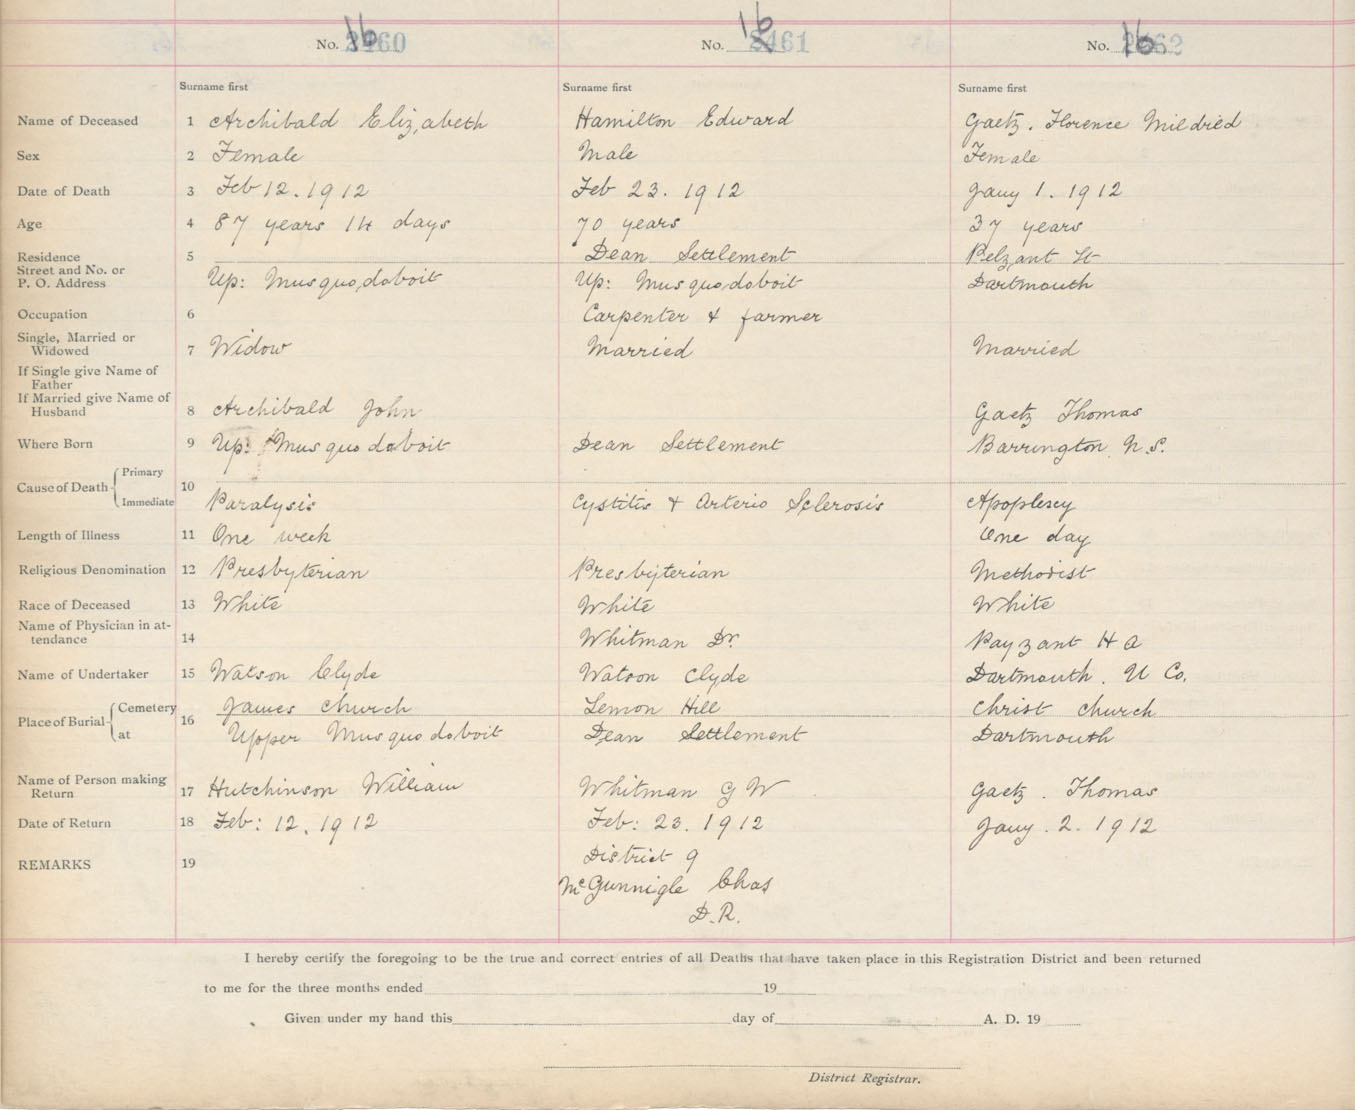 No. 2460 16
No. 2461 16
No. 2462 16
Surname first
Surname first
Surname first
Name of Deceased 1 Archibald Elizabeth
Hamilton Edward
Gaetz. Florence Mildred
Sex 2 Female
Male
Female
Date of Death 3 Feb 12. 1912
Feb 23. 1912
Jany 1. 1912
Age 4 87 years 14 days
70 years
37 years
Residence 5
Street and No. or
P. O. Address
Up: Musquodoboit
Dean Settlement
Up: Musquodoboit
Pelzant St
Dartmouth
Occupation 6
Carpenter & farmer
Single, Married or
Widowed 7 Widow
Married
Married
If Single give Name of
Father
If Married give Name of
Husband 8 Archibald John
Gaetz Thomas
Where Born 9 Up: Musquodoboit
Dean Settlement
Barrington N.S.
Cause of Death Primary
10
Immediate Paralysis
Cystitis & Arterio Sclerosis
Apoplexy
Length of Illness 11 One week
One day
Religious Denomination 12 Presbyterian
Presbyterian
Methodist
Race of Deceased 13 White
White
White
Name of Physician in at-
tendance 14
Whitman Dr.
Payzant H A
Name of Undertaker 15 Watson Clyde
Watson Clyde
Dartmouth. U Co.
Place of Burial Cemetery 16 James Church
at Upper Musquodoboit
Lemon Hill
Dean Settlement
Christ Church
Dartmouth
Name of Person making
Return 17 Hutchinson William
Whitman G W
Gaetz. Thomas
Date of Return 18 Feb: 12. 1912
Feb: 23. 1912
Jany. 2. 1912
REMARKS 19
District 9
McGunnigle Chas
D.R.
I hereby certify the foregoing to be the true and correct entries of all Deaths that have taken place in this Registration District and been returned
to me for the three months ended 19
Given under my hand this day of A. D. 19
District Registrar.